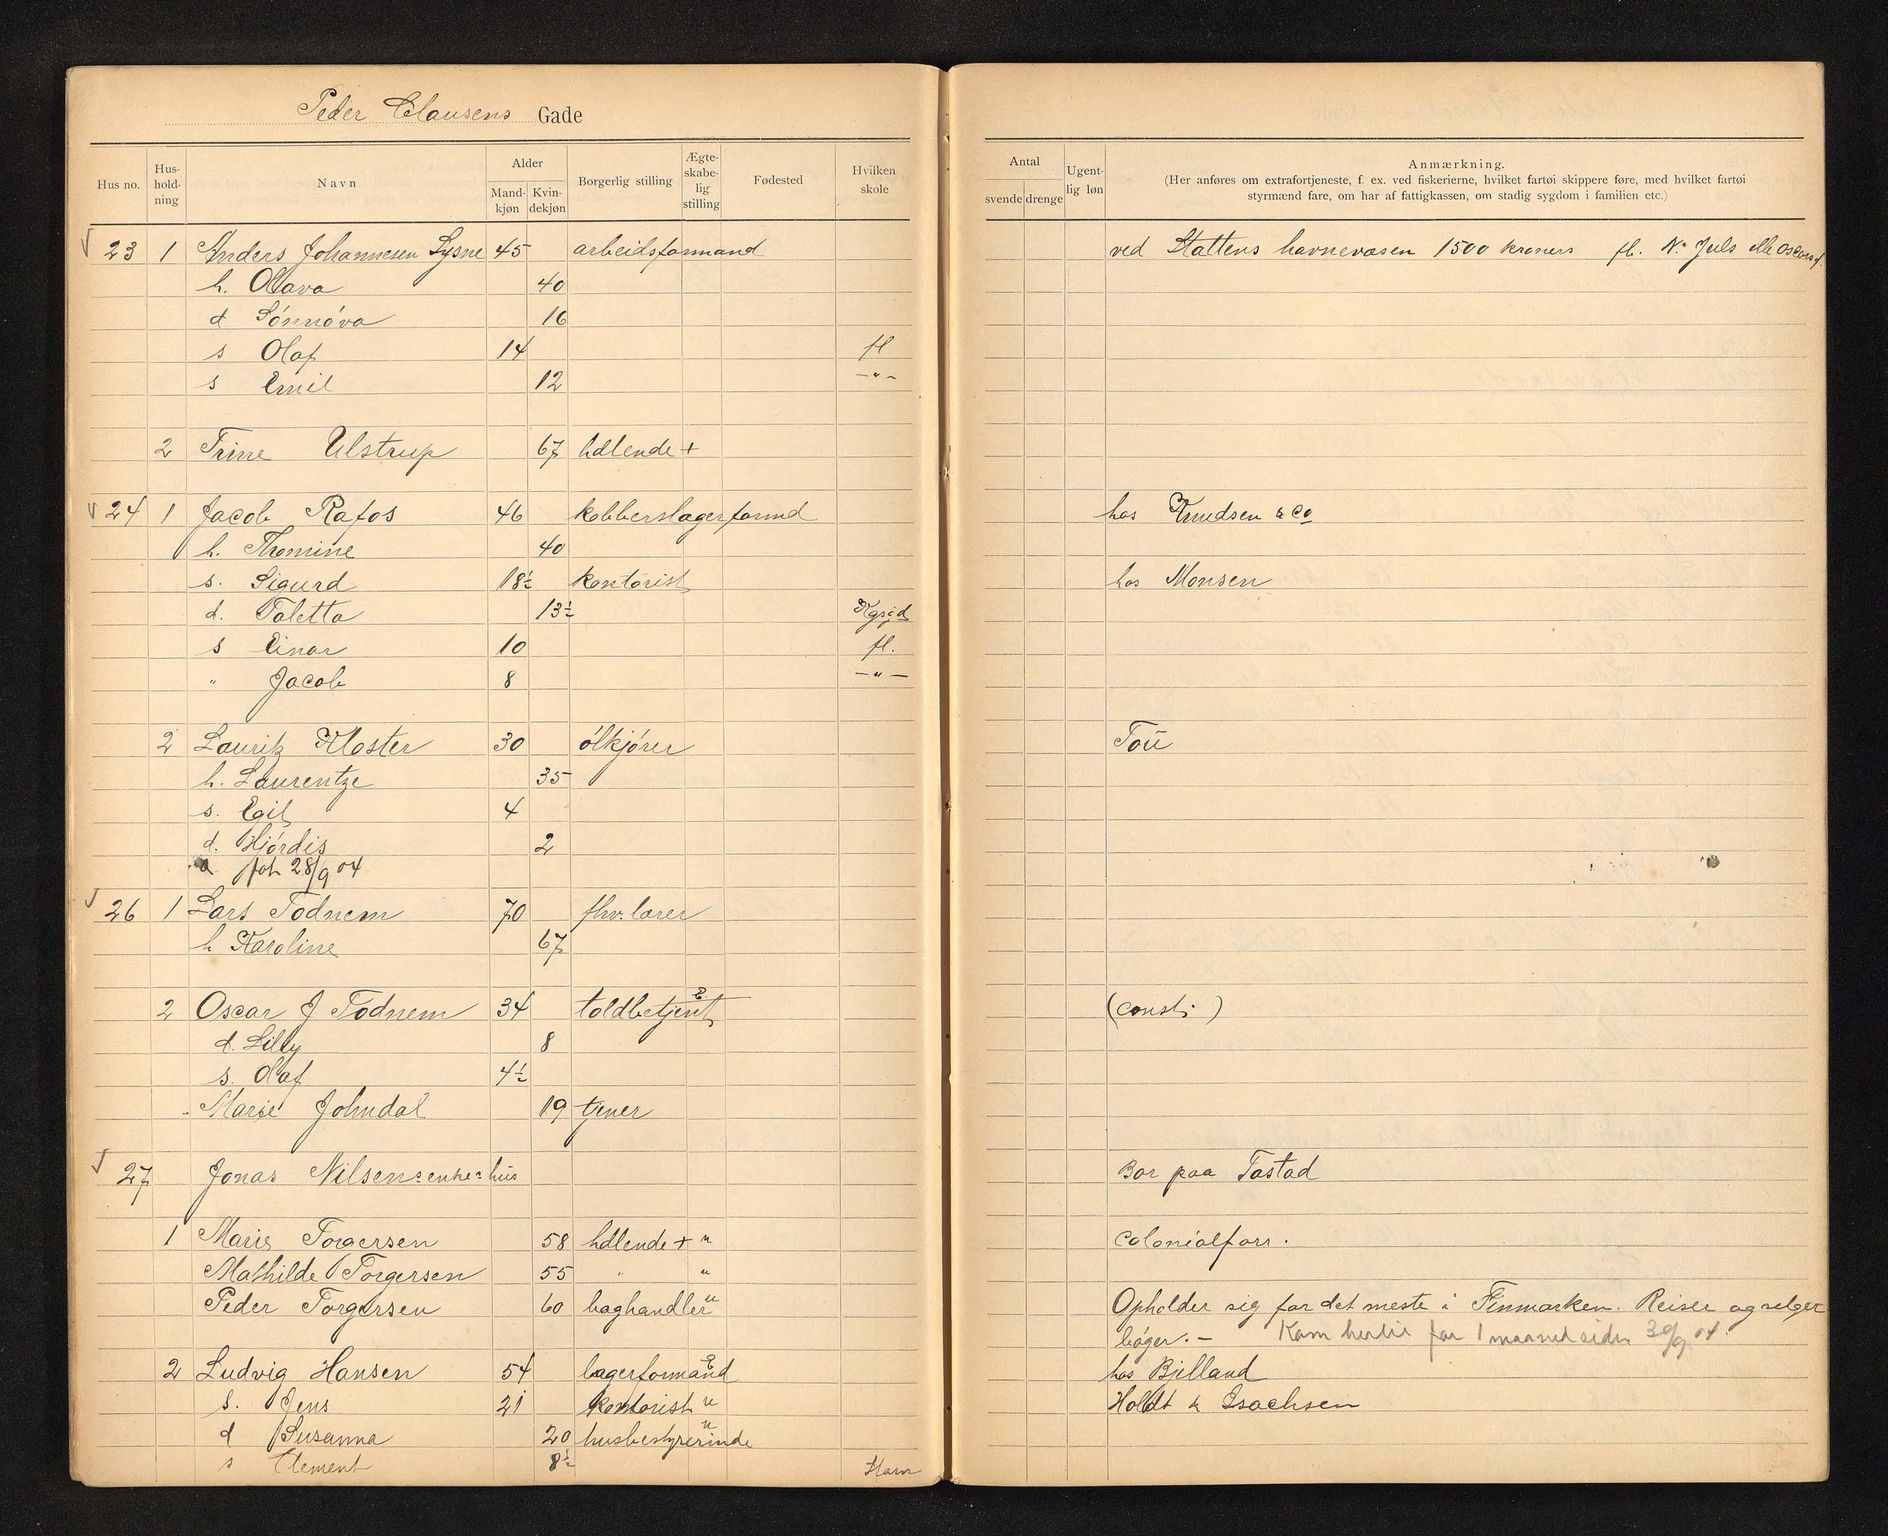 Peder Clausens Gade
Hus no. Hus-hold-ning Navn Alder Mand-kjøn Kvin-dekjøn Borgerlig stilling Ægte-skabe-lig stilling Fødested Hvilken skole Antal svende drenge Ugent-lig løn Anmærkning.
(Her anføres om extrafortjeneste, f. ex. ved fiskerierne, hvilket fartøi skippere føre, med hvilket fartøi
styrmænd fare, om har af fattigkassen, om stadig sygdom i familien etc.)
23 1 Anders Johannesen Lysne 45 arbeidsformand ved Stattens havnevæsen 1500 kroners fl. N. Juls elle Oscarsg.
h. Olava 40
d Sónnóva 16
s Olaf 14 fl
s Emil 12 -"-
2 Trine Ulstrup 67 hdlende +
24 1 Jacob Rafos 46 kobberslagerformd hos Knudsen & Co
h. Thomine 40
s. Sigurd 18½ kontorist hos Monsen
d. Taletta 13½ Kgsgd
s Einar 10 fl.
" Jacob 8 -"-
2 Lauritz Kloster 30 ólkjórer Tou
h. Laurentze 35
s. Egil 4
d. Hjórdis 2
fóh 28/9 04
26 1 Lars Todnem 70 fhv. lærer
h Karoline 67
2 Oscar J Todnem 34 toldbetjent E (const:)
d. Lilly 8
s. Olaf 4½
Marie Johndal 19 tjener
27 Jonas Nilsens enkes hus Bor paa Tastad
1 Marie Torgersen 58 hdlende + u Colonialforr.
Mathilde Torgersen 55 " "
Peder Torgersen 60 boghandler u Opholder sig for det meste i Finmarken. Reiser og selger
bóger. - Kom hertil for 1 maaned siden 30/9 04.
2 Ludvig Hansen 54 lagerformand E hos Bjelland
s. Jens 21 kontorist u Holdt & Isachsen
d Susanna 20 husbestyrerinde u
s Clement 8½ Harv